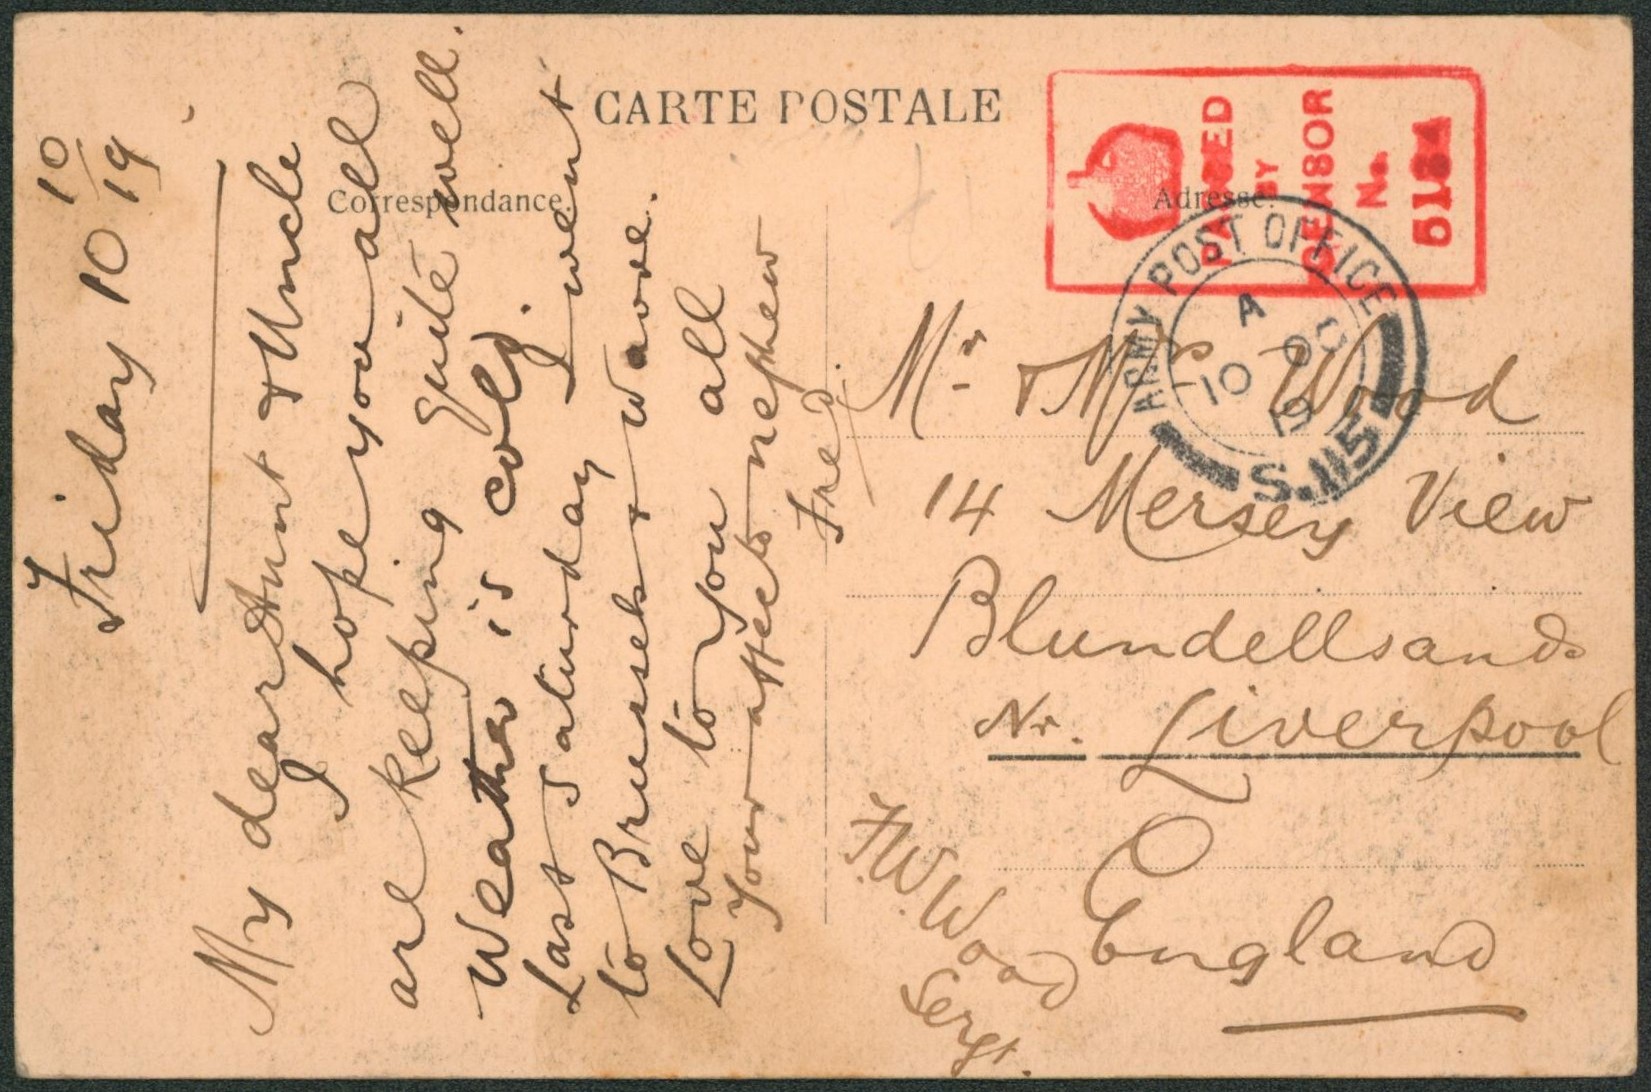 CARTE POSTALE
Correspondance.
Adresse:
PASSED
BY
CENSOR
No.
5184
ARMY POST OFFICE
A
10 OC
19
S.115
Friday 10 10/19
My dear Aunt & Uncle
I hope you all
are keeping quite well.
Weather is cold.
Last Saturday I went
to Brussels & Wavre.
Love to you all
Your affecte nephew
Fred.
Mr & Mrs Wood
14 Mersey View
Blundellsands
Nr. Liverpool
England
F.W. Wood
Sergt.